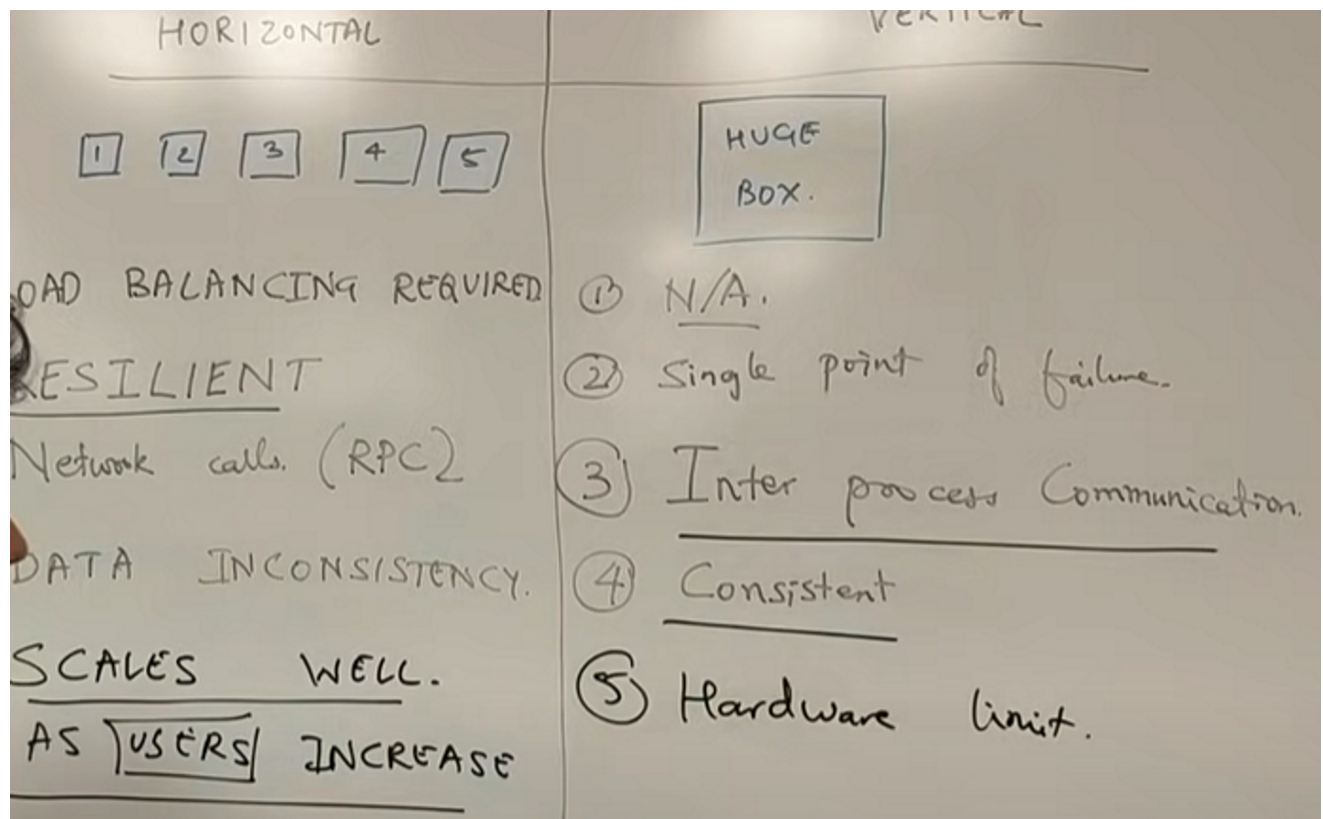 HORIZONTAL
VERTICAL
1 2 3 4 5
HUGE
BOX.
OAD BALANCING REQUIRED
RESILIENT
Network calls. (RPC)
DATA INCONSISTENCY.
SCALES WELL.
AS USERS INCREASE
① N/A.
② Single point of failure.
③ Inter process Communication.
④ Consistent
⑤ Hardware limit.